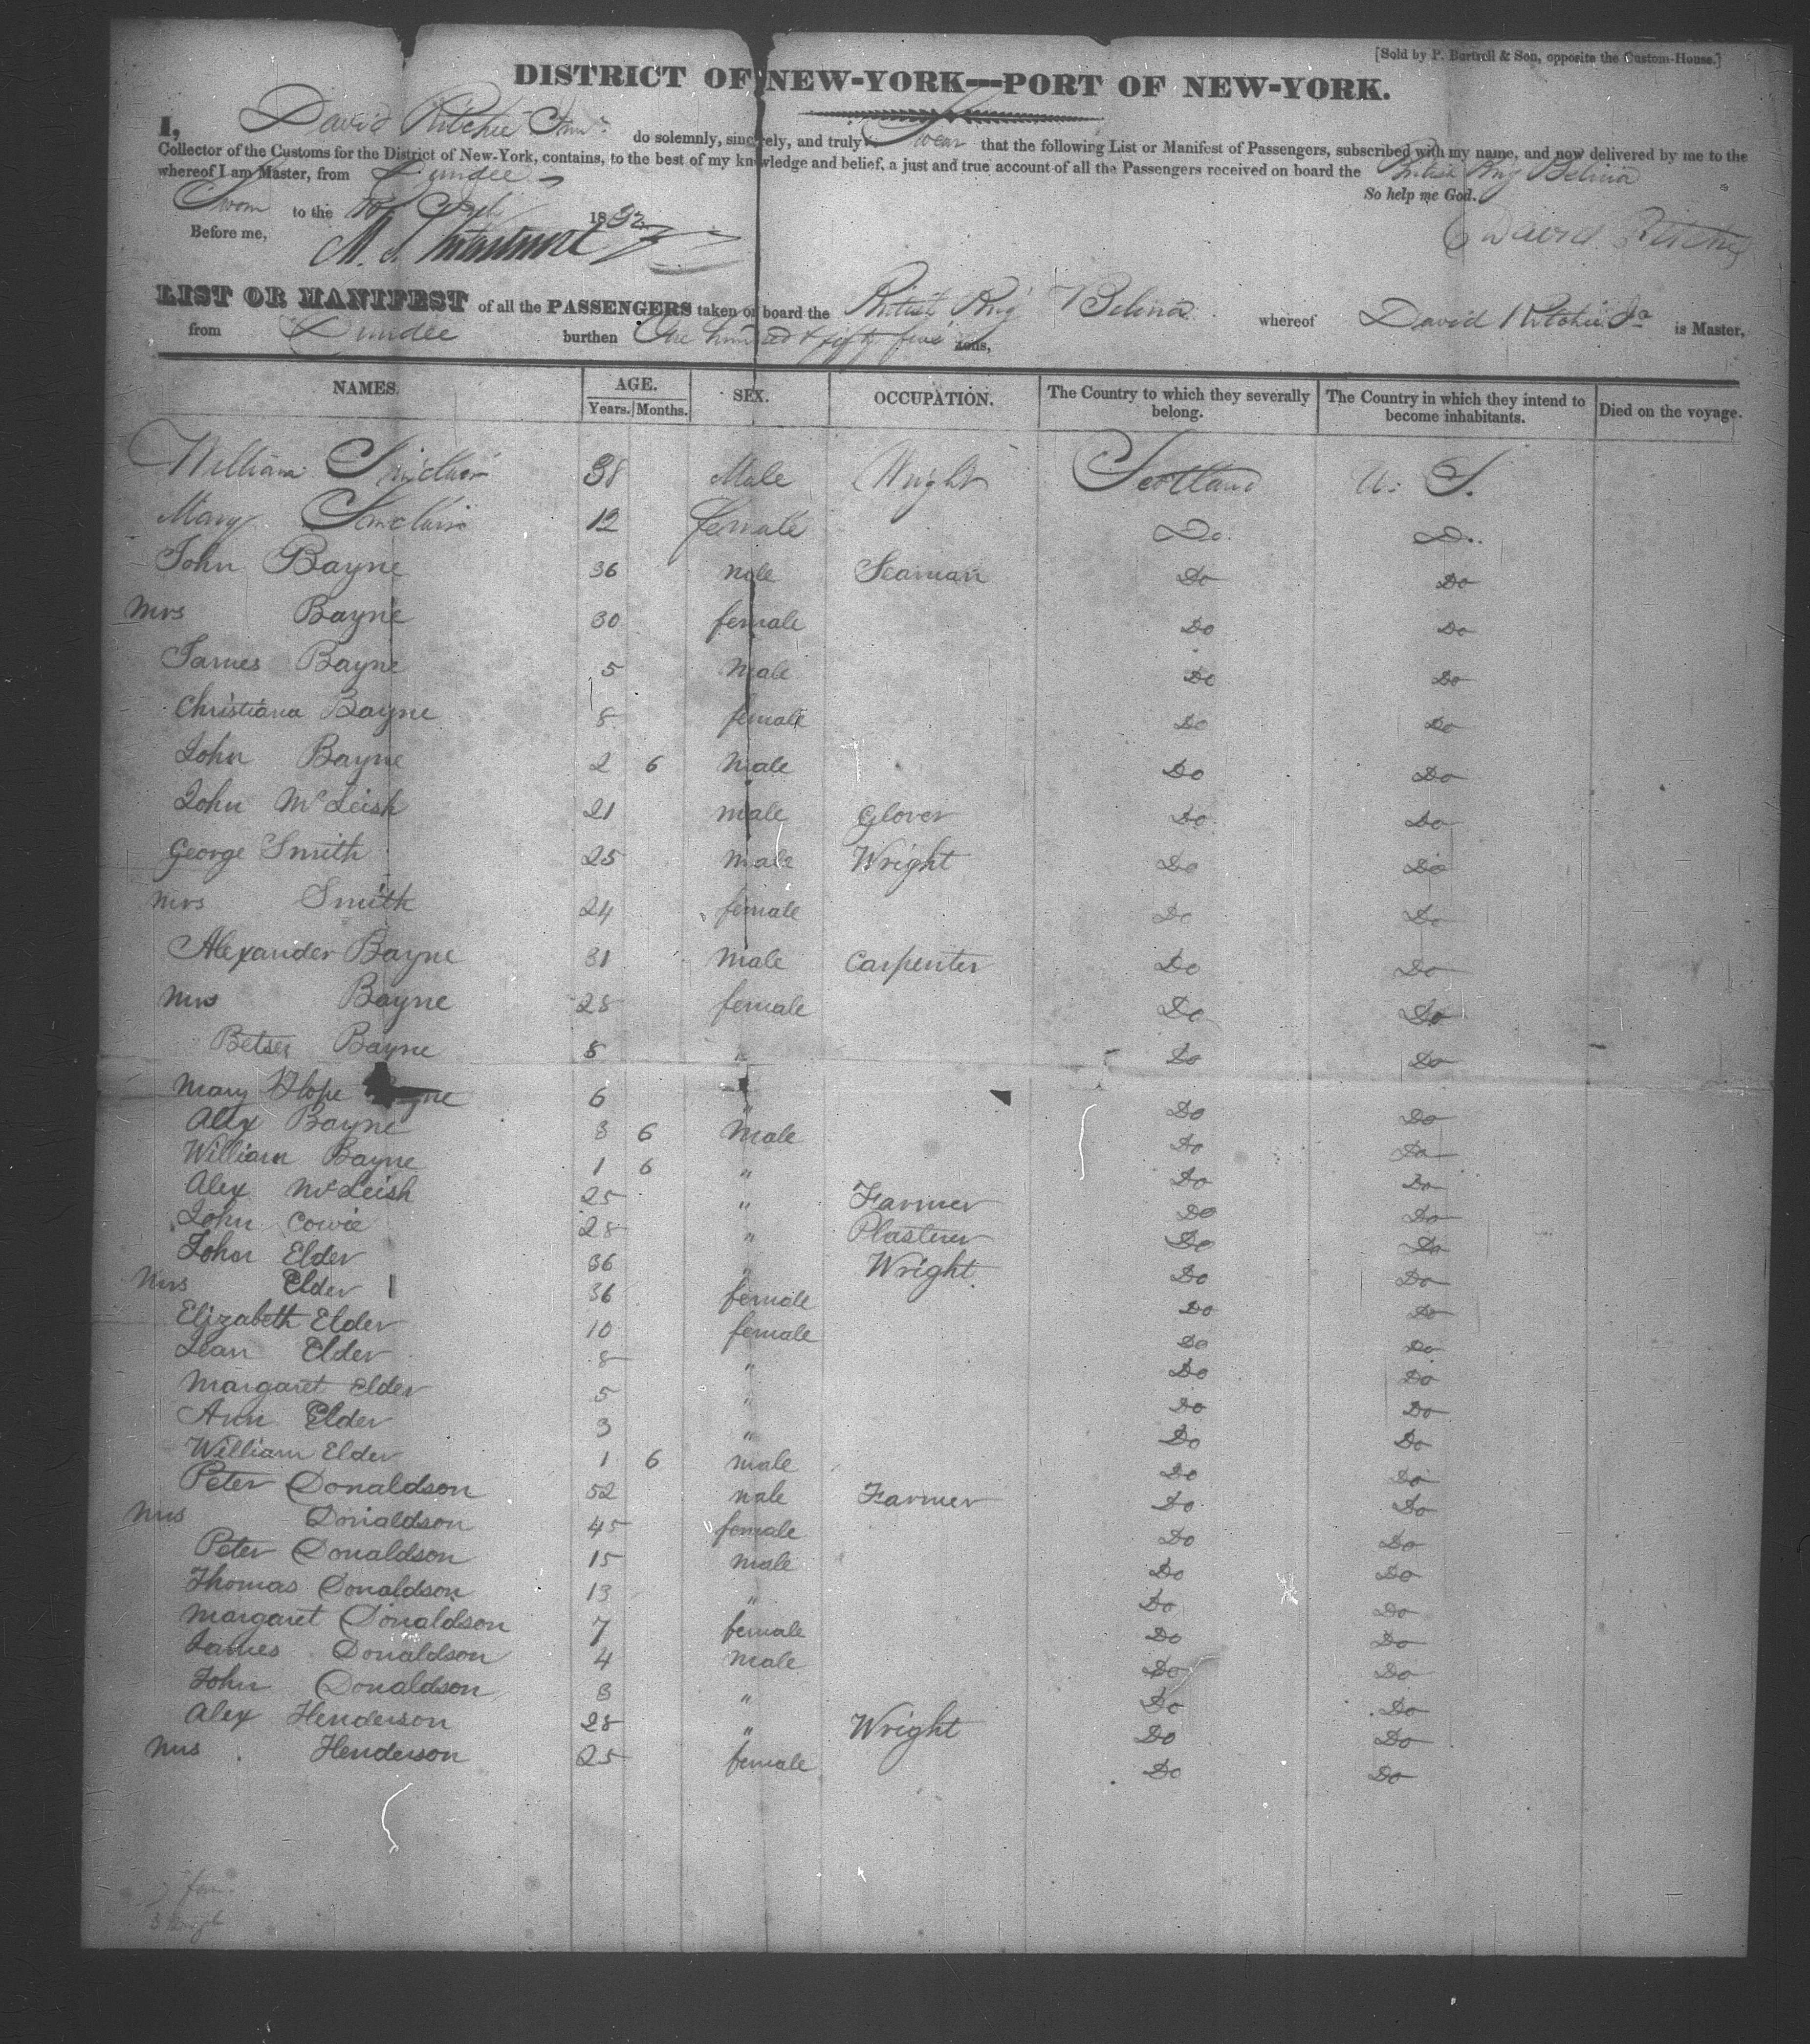 [Sold by P. Burtsell & Son, opposite the Custom-House.]
DISTRICT OF NEW-YORK—PORT OF NEW-YORK.
I, David Ritchie Junr. do solemnly, sincerely, and truly Swear that the following List or Manifest of Passengers, subscribed with my name, and now delivered by me to the
Collector of the Customs for the District of New-York, contains, to the best of my knowledge and belief, a just and true account of all the Passengers received on board the British Brig Belina
whereof I am Master, from Dundee
So help me God.
Sworn to the 1832
Before me,
David Ritchie
LIST OR MANIFEST of all the PASSENGERS taken on board the British Brig Belina whereof David Ritchie Jr is Master,
from Dundee burthen One hundred & fifty five tons,
NAMES. AGE. SEX. OCCUPATION. The Country to which they severally belong. The Country in which they intend to become inhabitants. Died on the voyage.
Years. Months.
William Sinclair 38 Male Wright Scotland U. S.
Mary Sinclair 12 female Do. Do.
John Bayne 36 male Seaman Do Do
Mrs Bayne 30 female Do Do
James Bayne 5 Male Do Do
Christiana Bayne 8 female Do Do
John Bayne 2 6 Male Do Do
John McLeish 21 male Glover Do Do
George Smith 25 Male Wright Do Do
Mrs Smith 24 female Do Do
Alexander Bayne 31 Male Carpenter Do Do
Mrs Bayne 28 female Do Do
Betsey Bayne 8 " Do Do
Mary Hope Bayne 6 " Do Do
Alex Bayne 3 6 Male Do Do
William Bayne 1 6 " Do Do
Alex McLeish 25 " Farmer Do Do
John Cowie 28 " Plasterer Do Do
John Elder 36 " Wright Do Do
Mrs Elder 36 female Do Do
Elizabeth Elder 10 female Do Do
Jean Elder 8 " Do Do
Margaret Elder 5 " Do Do
Ann Elder 3 " Do Do
William Elder 1 6 male Do Do
Peter Donaldson 52 male Farmer Do Do
Mrs Donaldson 45 female Do Do
Peter Donaldson 15 male Do Do
Thomas Donaldson 13 " Do Do
Margaret Donaldson 7 female Do Do
James Donaldson 4 Male Do Do
John Donaldson 3 " Do Do
Alex Henderson 28 " Wright Do Do
Mrs Henderson 25 female Do Do